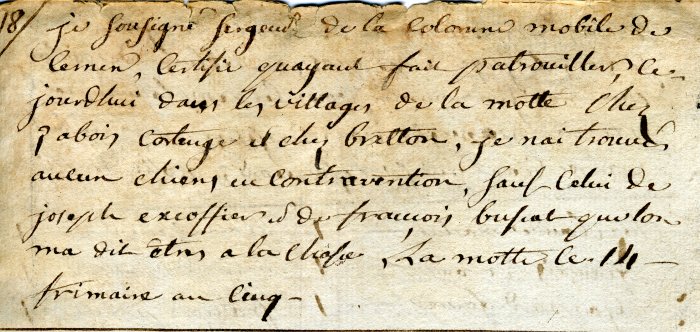 18/ je sousigné sergent de la Colonne mobile de
lemen, Certifie quayant fait patrouiller, Ce
jourdhui dans les villages de la motte Chez
jabois Corteuge et chez bretton, je nai trouvé
aucun chiens en Contravention, sauf Celui de
joseph excoffier & de francois buscat que lon
ma dit êtres a la Chasse, La motte le 14
frimaire an Cinq